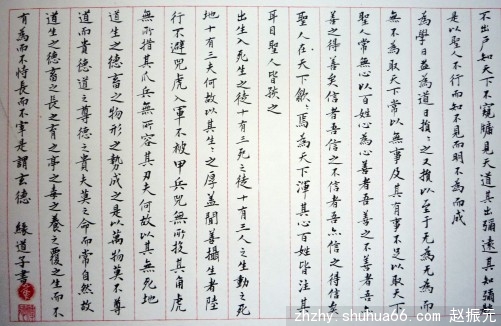 不出户知天下不窺牖見天道其出彌遠其知彌
是以聖人不行而知不見而明不為而成
為學日益為道日損:之又損以至于无為无為而
無不為取天下常以無事及其有事不足以取天下
聖人常無心以百姓心為心善者吾善之不善者吾
善之得善矣信者吾信之不信者吾亦信之得信矣
聖人在天下歙:焉為天下渾其心百姓皆注其
耳目聖人皆孩之
出生入死生之徒十有三死之徒十有三人之生動之死
地十有三夫何故以其生:之厚蓋聞善攝生者陸
行不避兕虎入軍不被甲兵兕無所投其角虎
無所措其爪兵無所容其刃夫何故以其無死地
道生之德畜之物形之勢成之是以萬物莫不尊
道而貴德道之尊德之貴夫莫之命而常自然故
道生之德畜之長之育之亭之毒之養之覆之生而不
有為而不恃長而不宰是謂玄德 緣道子書
zhzhy.shuhua66.com 赵振元